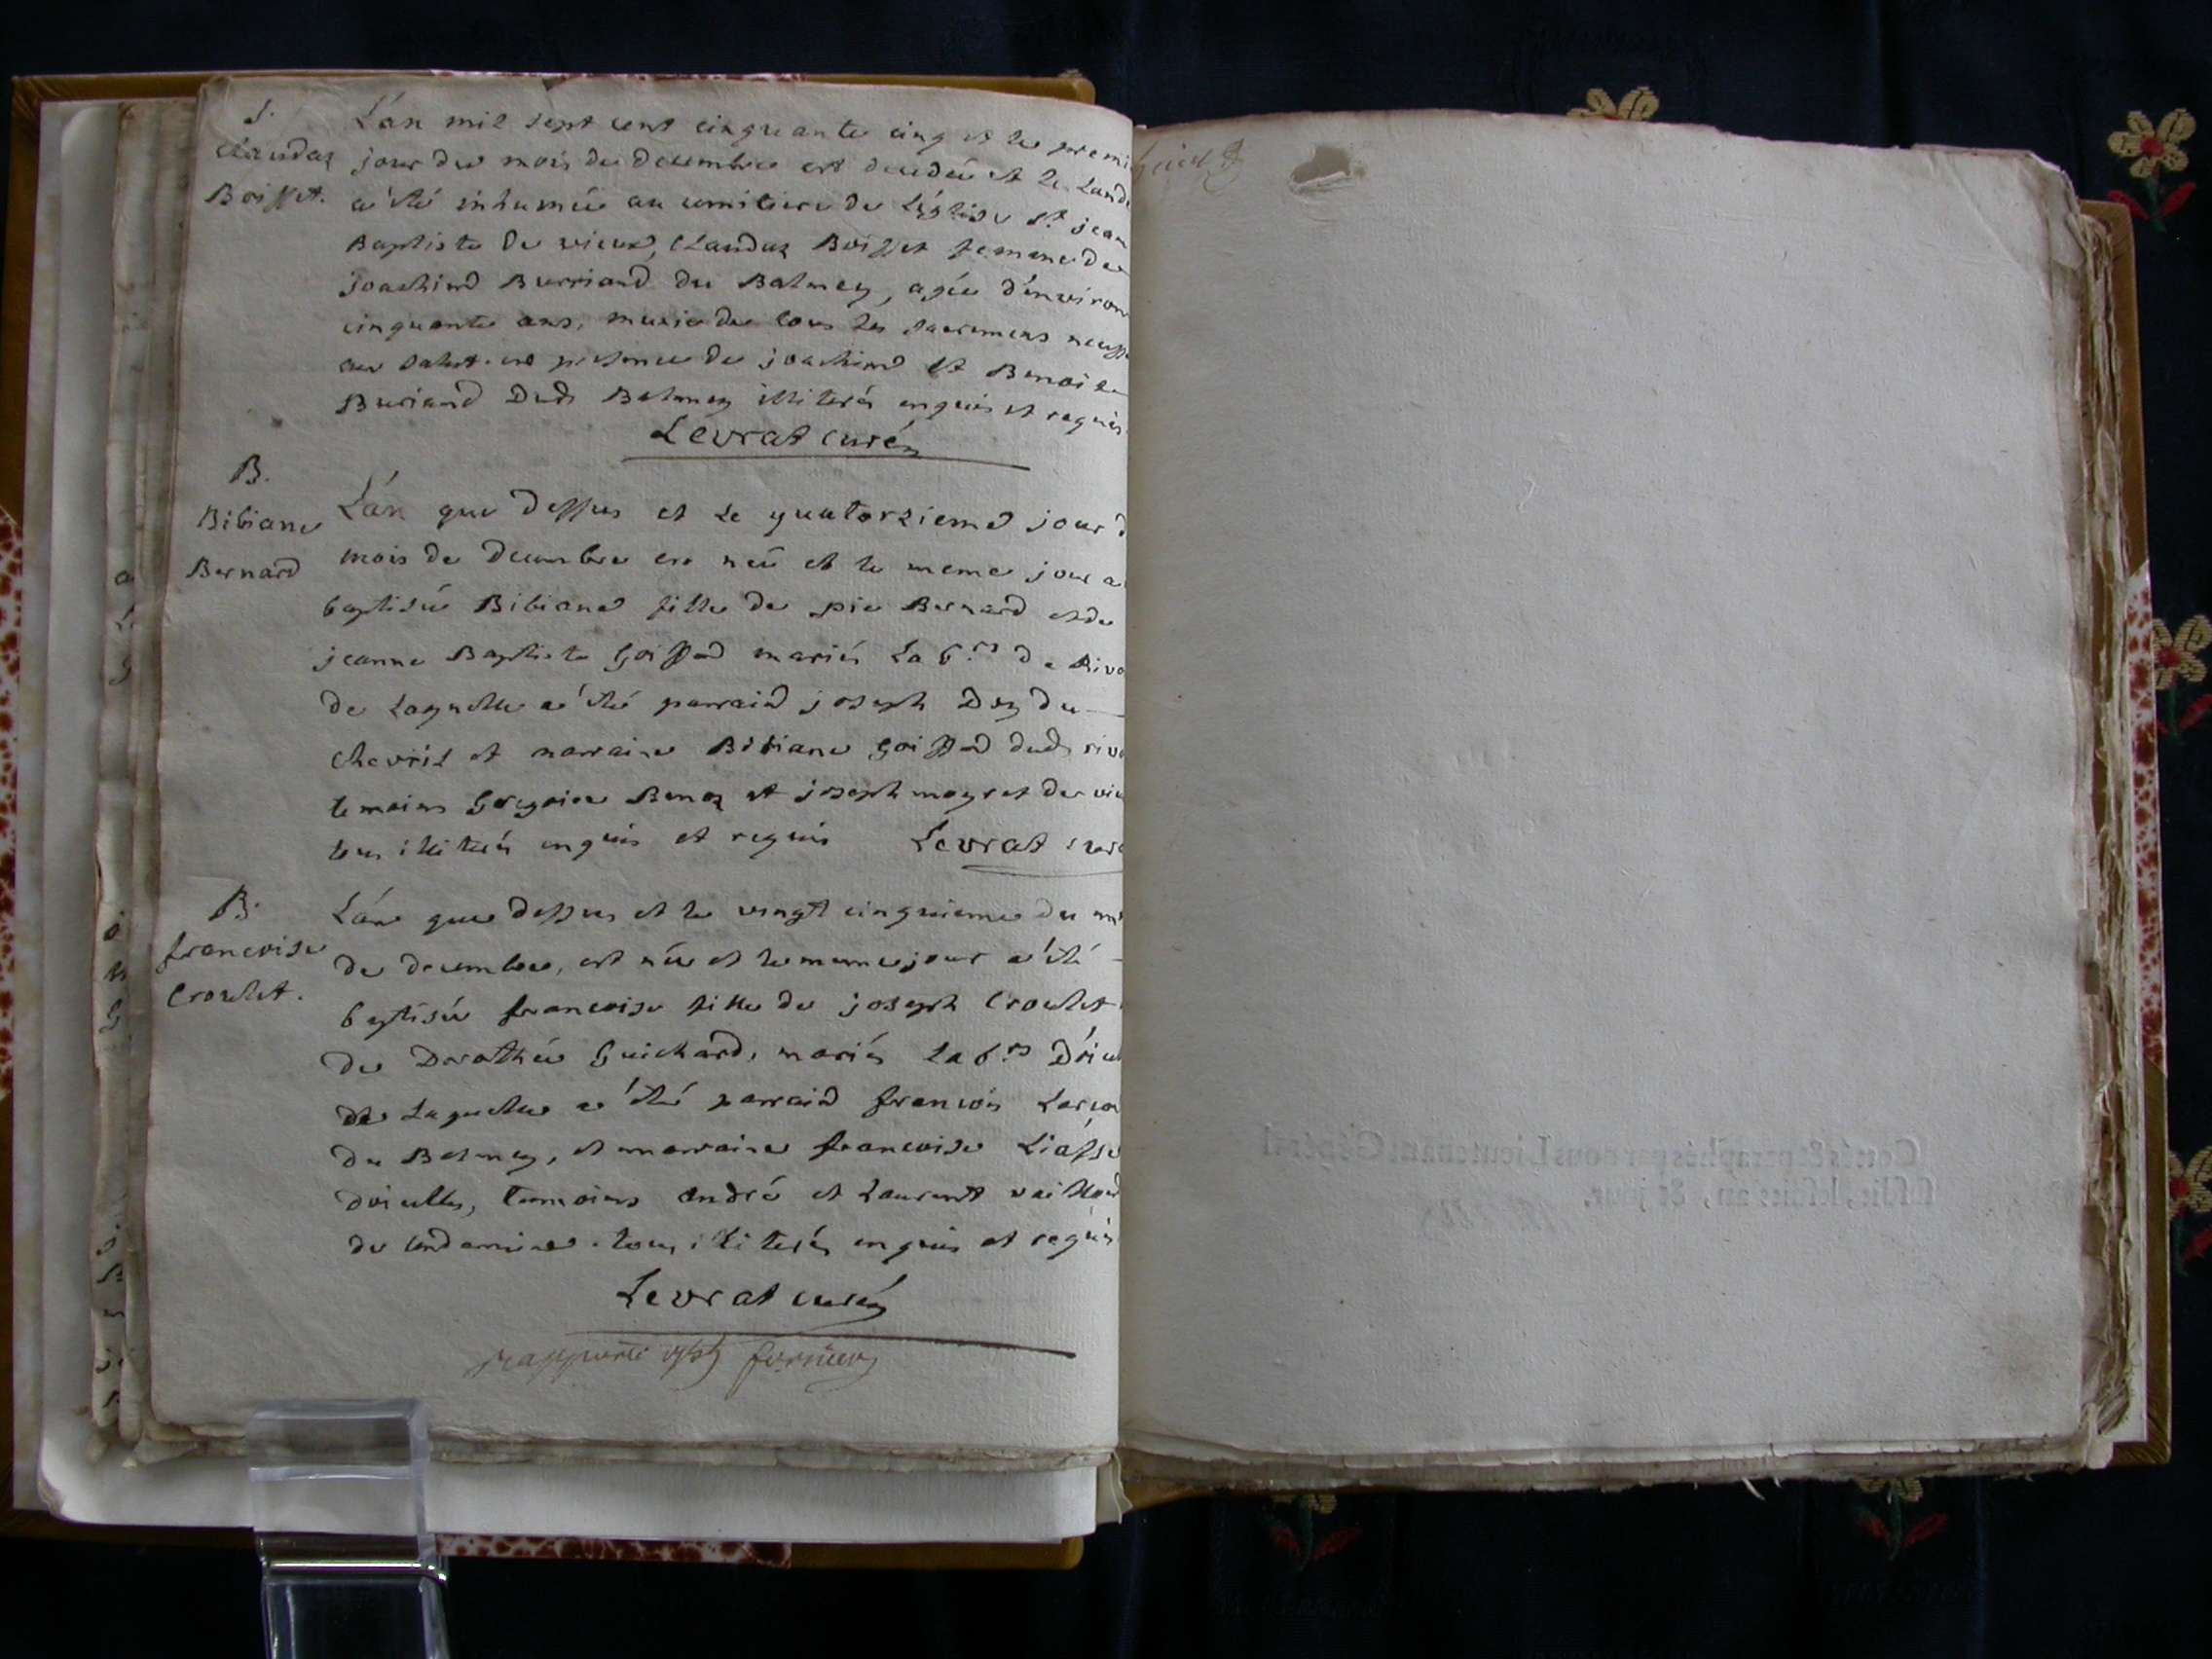 S.
Claudaz
Boisset.
L'an mil sept cent cinquante cinq et le premi
jour du mois de decembre est decedée et le Lande
a été inhumée au cimitiere de L'église St. jean
Baptiste de vieux, Claudaz Boisset femme de
joachimd Burriand du Balmey, agée d'environ
cinquante ans, munie de tous les sacremens necess
au salut. en presence de joachimd et Benoit
Buriand dudt Balmey illiterés enquis et requis
Levrat curé
B.
Bibiane
Bernard
L'an que dessus et le quatorziemе jour d
mois de decembre est née et le meme jour a
baptisée Bibiane fille de pie Bernard et de
jeanne Baptiste Goissod mariés Lab.rs de Rivo
de Laquelle a été parraid joseph Dey du
chevril et marraine Bibiane Goissod dudt rivo
temoins Gregoire Benoz et joseph mayret de vie
tous illiterés enquis et requis Levrat curé
B.
francoise
Crochet.
L'an que dessus et le vingt cinquieme du m
de decembre, est née et le meme jour a été
baptisée francoise fille de joseph Crochet
de Dorothée Guichard, mariés Lab.rs D'oi
de Laquelle a été parraid francois
du Balmey, et marraine francoise
doicelles, temoins andré et Laurent
de tous illiterés enquis et requis
Levrat curé
Cottés & paraphés par nous Lieutenant Général
susdit, lesdits an, & jour.